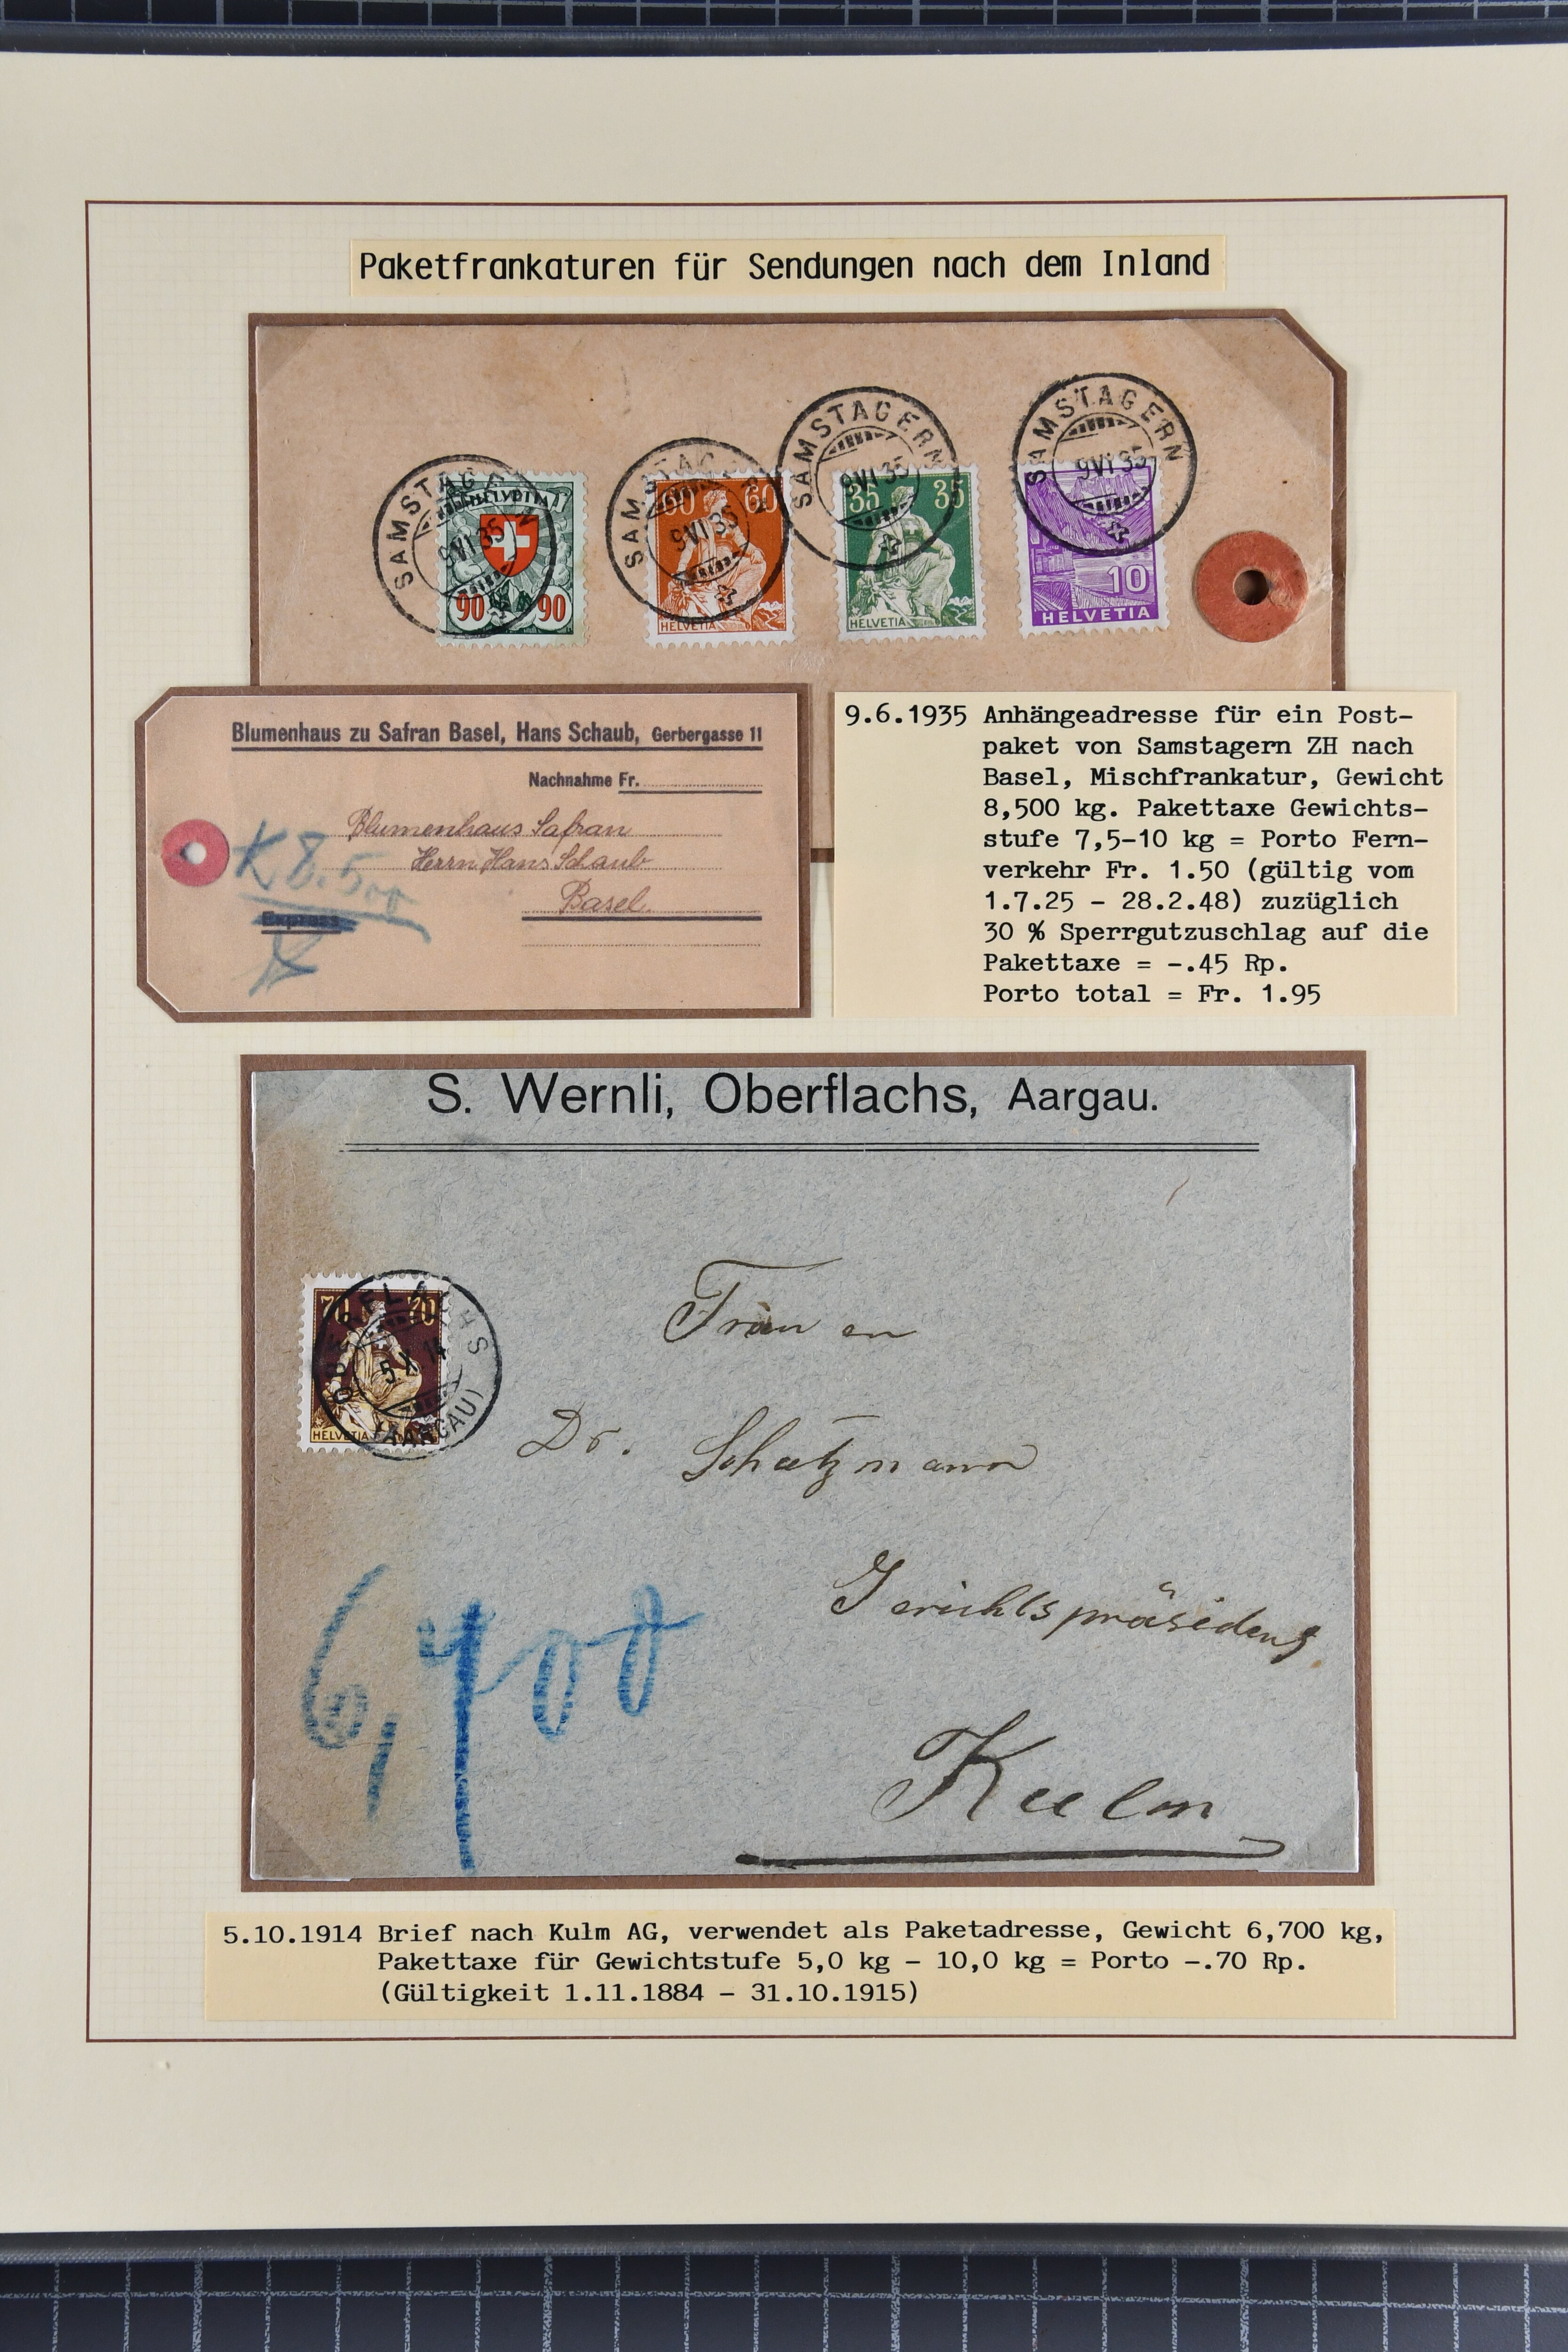 Paketfrankaturen für Sendungen nach dem Inland
SAMSTAGERN
9 VI 35
HELVETIA
90 90
SAMSTAGERN
9 VI 35
60 60
HELVETIA
SAMSTAGERN
9 VI 35
35 35
HELVETIA
SAMSTAGERN
9 VI 35
10
HELVETIA
Blumenhaus zu Safran Basel, Hans Schaub, Gerbergasse 11
Nachnahme Fr.
Blumenhaus Safran
Herrn Hans Schaub
Basel.
K 8.500
Express
9.6.1935 Anhängeadresse für ein Post-
paket von Samstagern ZH nach
Basel, Mischfrankatur, Gewicht
8,500 kg. Pakettaxe Gewichts-
stufe 7,5-10 kg = Porto Fern-
verkehr Fr. 1.50 (gültig vom
1.7.25 - 28.2.48) zuzüglich
30 % Sperrgutzuschlag auf die
Pakettaxe = -.45 Rp.
Porto total = Fr. 1.95
S. Wernli, Oberflachs, Aargau.
70 70
HELVETIA
OBERFLACHS
5 X 14
(AARGAU)
Dr. Schatzmann
Gerichtspräsident
Kulm
6,700
5.10.1914 Brief nach Kulm AG, verwendet als Paketadresse, Gewicht 6,700 kg,
Pakettaxe für Gewichtstufe 5,0 kg - 10,0 kg = Porto -.70 Rp.
(Gültigkeit 1.11.1884 - 31.10.1915)